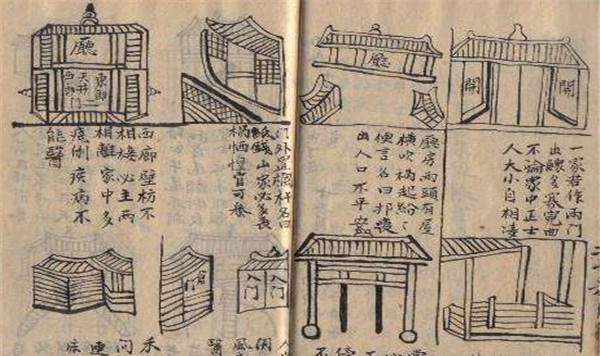 開
開
一家若作兩門
出鰥多寡冤曲
不論家中正主
人大小自相凌
廳
廳房兩頭有屋
橫吹禍起紛〻
便言名曰喪
出人口不平
門外置欄杆名曰
紙錢山家必多喪
禍恓惶官可叅
廳
東廊
天井門
西廊
西廊壁枋不
相接必主兩
相離家中多
疾病不
能醫
入門
入門
倉門